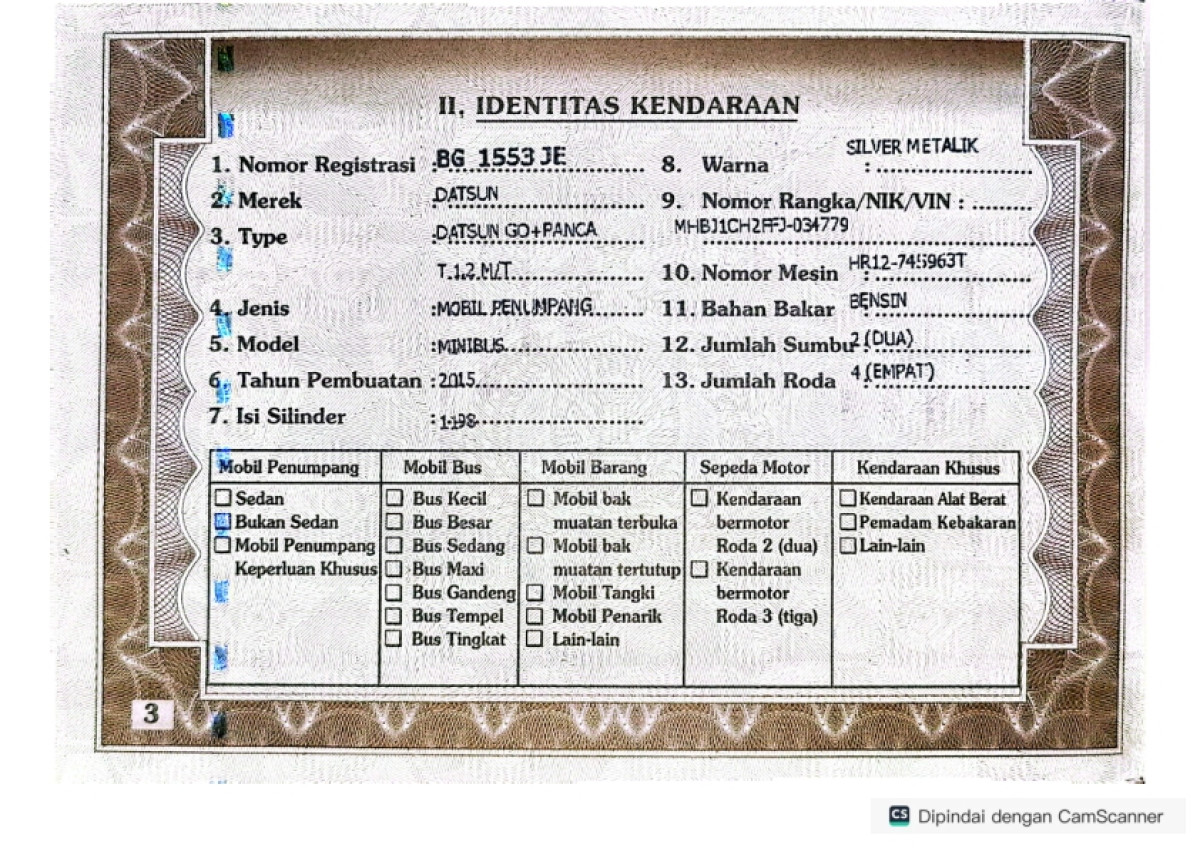 II. IDENTITAS KENDARAAN
1. Nomor Registrasi : BG 1553 JE
2. Merek : DATSUN
3. Type : DATSUN GO+PANCA
T.1.2 M/T
4. Jenis : MOBIL PENUMPANG
5. Model : MINIBUS
6. Tahun Pembuatan : 2015
7. Isi Silinder : 1.198
8. Warna : SILVER METALIK
9. Nomor Rangka/NIK/VIN :
MHBJ1CH2FFJ-034779
10. Nomor Mesin : HR12-745963T
11. Bahan Bakar : BENSIN
12. Jumlah Sumbu : 2 (DUA)
13. Jumlah Roda : 4 (EMPAT)
Mobil Penumpang
Sedan
Bukan Sedan
Mobil Penumpang
Keperluan Khusus
Mobil Bus
Bus Kecil
Bus Besar
Bus Sedang
Bus Maxi
Bus Gandeng
Bus Tempel
Bus Tingkat
Mobil Barang
Mobil bak
muatan terbuka
Mobil bak
muatan tertutup
Mobil Tangki
Mobil Penarik
Lain-lain
Sepeda Motor
Kendaraan
bermotor
Roda 2 (dua)
Kendaraan
bermotor
Roda 3 (tiga)
Kendaraan Khusus
Kendaraan Alat Berat
Pemadam Kebakaran
Lain-lain
3
CS Dipindai dengan CamScanner